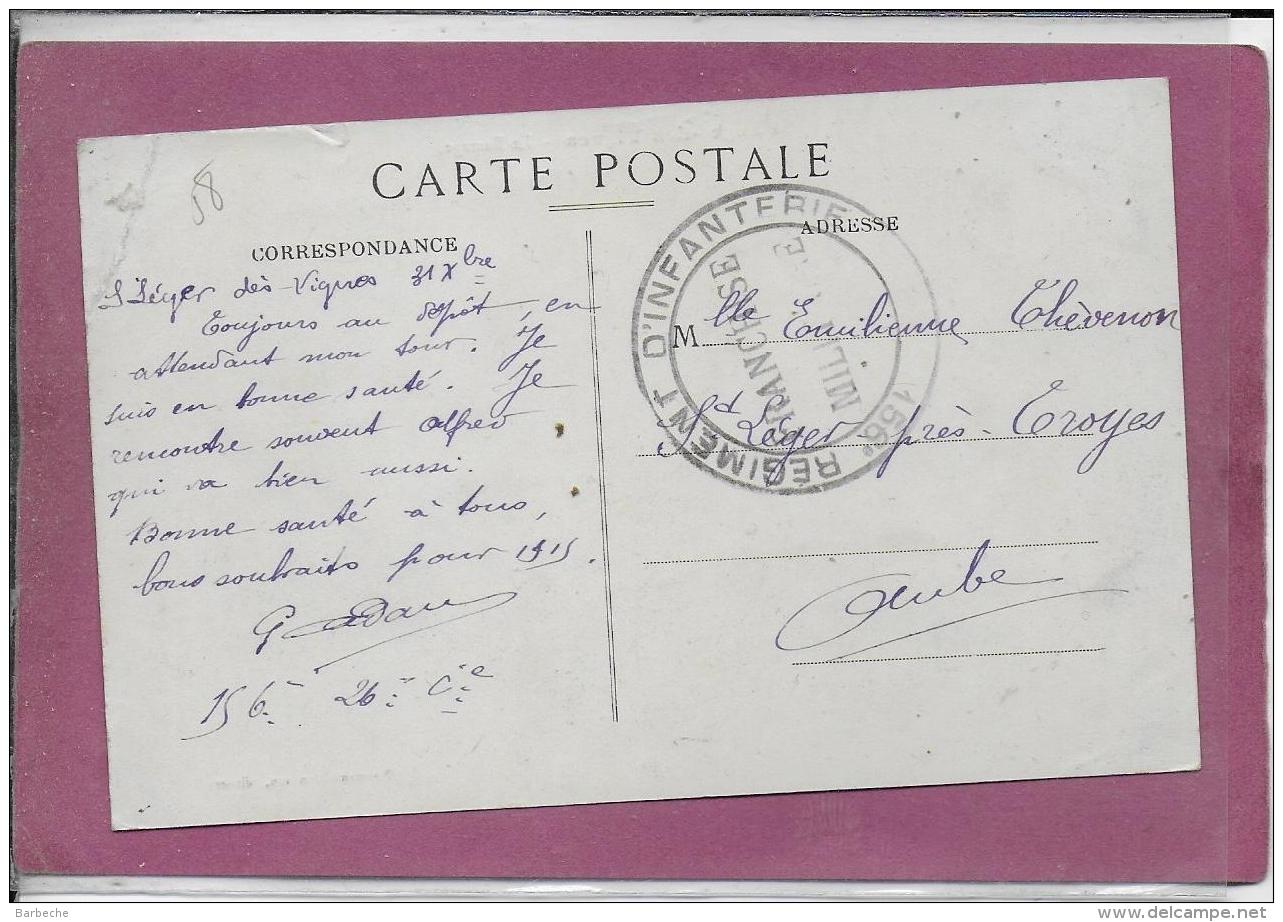 CARTE POSTALE
58
CORRESPONDANCE
St Léger des Vignes 31 Xbre
Toujours au dépôt, en
attendant mon tour. Je
suis en bonne santé. Je
rencontre souvent Alfred
qui va bien aussi.
Bonne santé à tous,
bons souhaits pour 1915.
G
156e 26e Cie
ADRESSE
Mlle Emilienne Thèvenon
St Léger près Troyes
Aube
156e RÉGIMENT D'INFANTERIE
FRANCHISE
Barbeche
www.delcampe.net